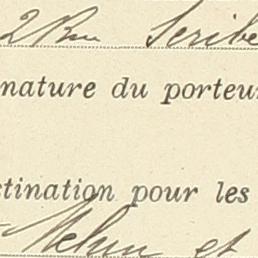 2 Rue Scribe
nature du porteur
stination pour les
Melun et